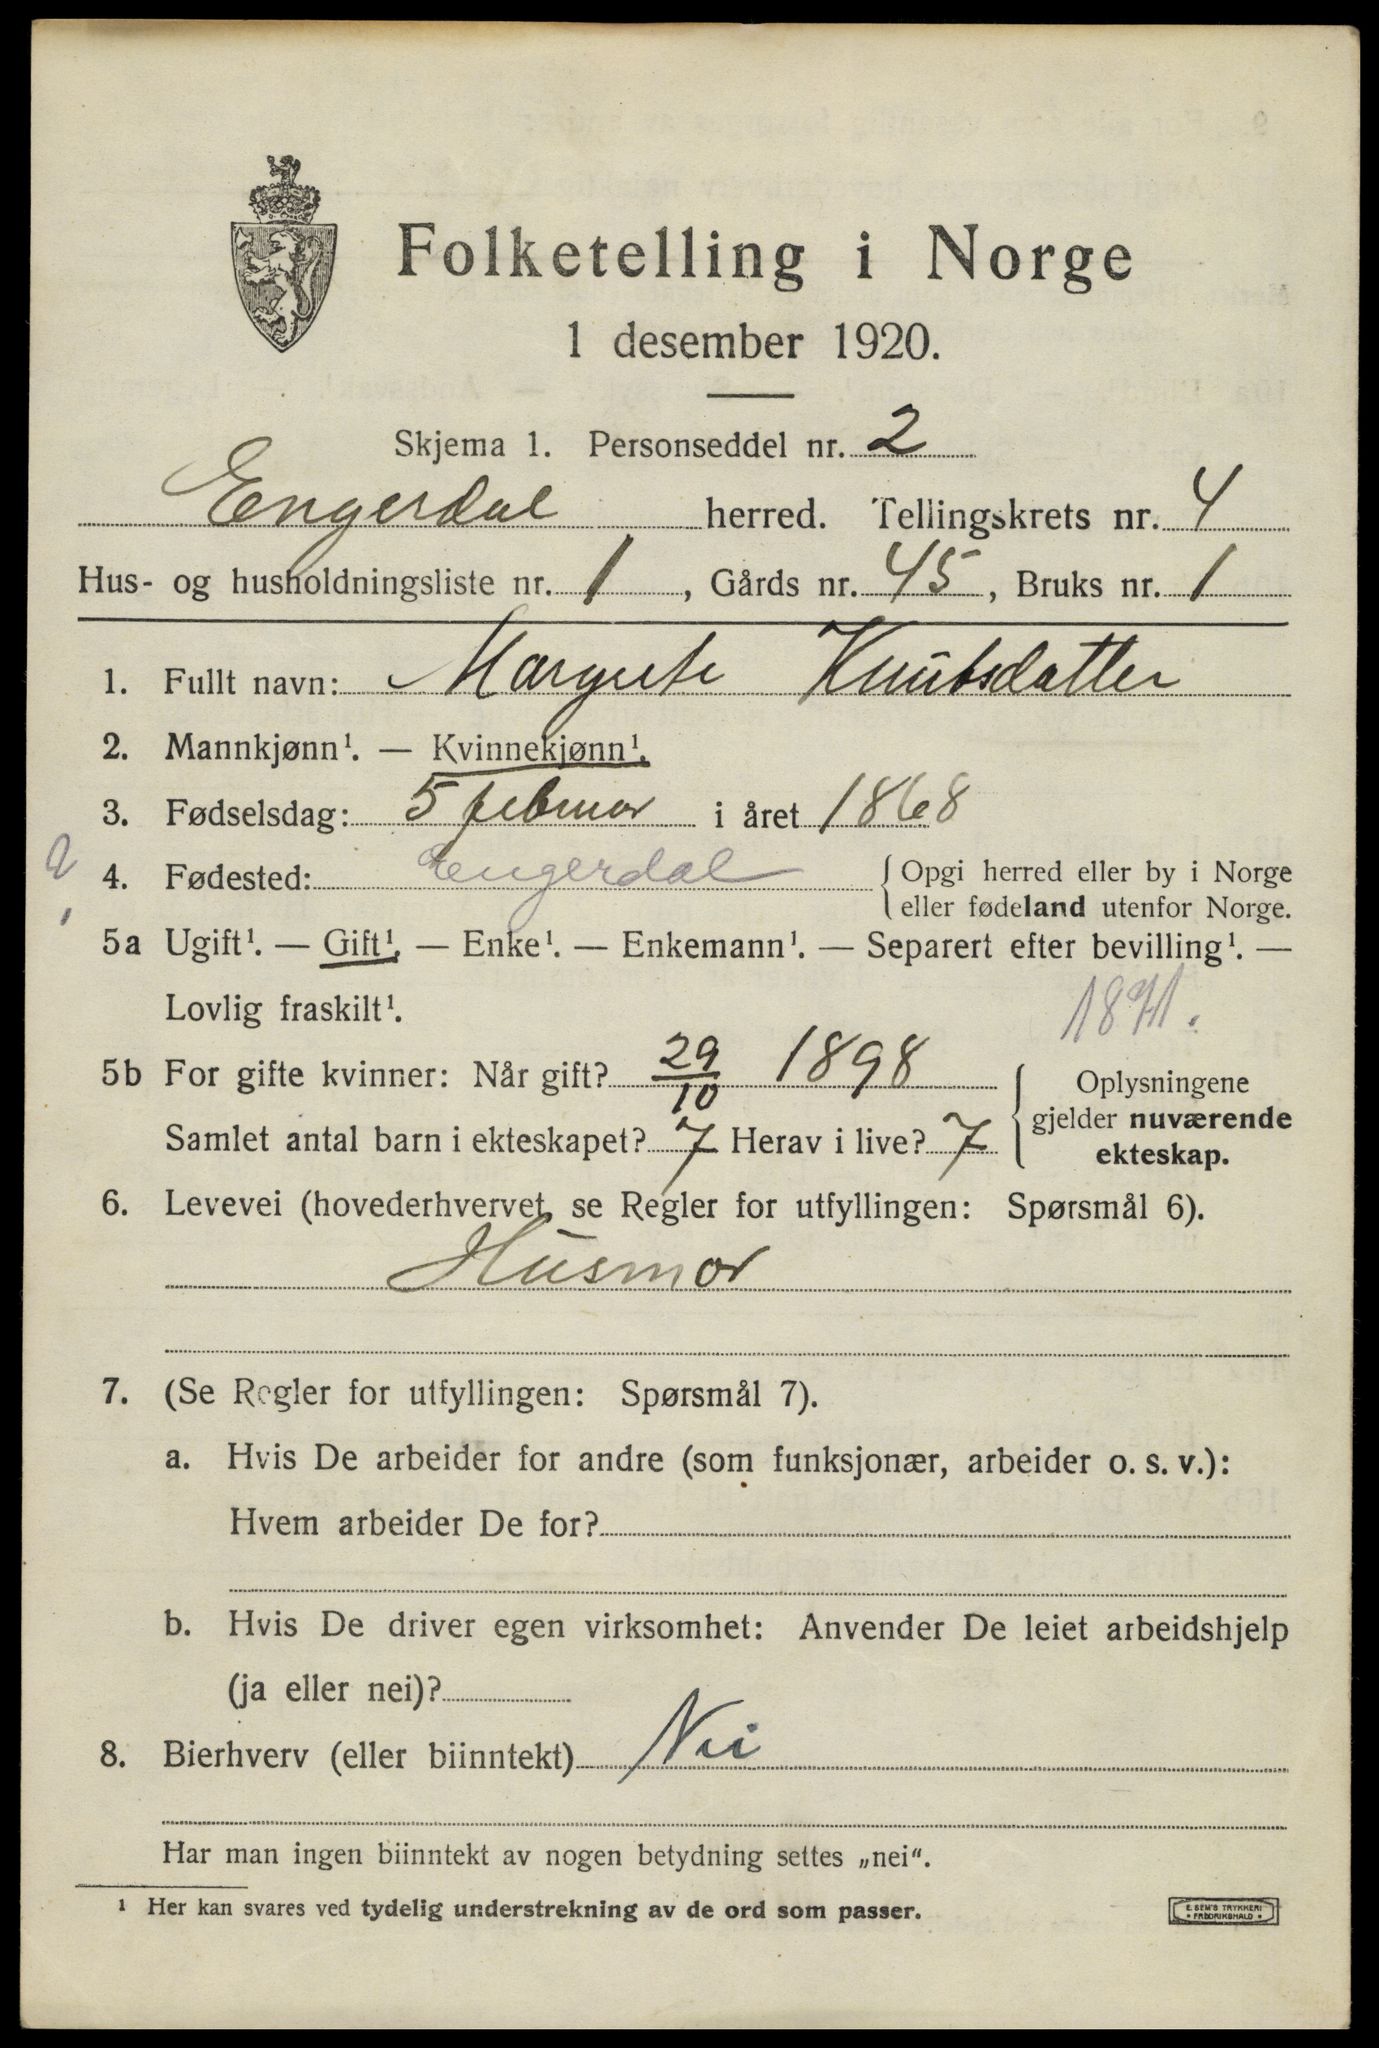 Folketelling i Norge
1 desember 1920.
Skjema 1. Personseddel nr. 2
Engerdal herred. Tellingskrets nr. 4
Hus- og husholdningsliste nr. 1, Gårds nr. 45, Bruks nr. 1
1. Fullt navn: Margrete Knutsdatter
2. Mannkjønn¹. — Kvinnekjønn¹.
3. Fødselsdag: 5 februar i året 1868
4. Fødested: Engerdal { Opgi herred eller by i Norge
eller fødeland utenfor Norge.
5a Ugift¹. — Gift¹. — Enke¹. — Enkemann¹. — Separert efter bevilling¹. —
Lovlig fraskilt¹.
1871.
5b For gifte kvinner: Når gift? 29/10 1898 { Oplysningene
gjelder nuværende
Samlet antal barn i ekteskapet? 7 Herav i live? 7
ekteskap.
6. Levevei (hovederhvervet, se Regler for utfyllingen: Spørsmål 6).
Husmor
7. (Se Regler for utfyllingen: Spørsmål 7).
a. Hvis De arbeider for andre (som funksjonær, arbeider o. s. v.):
Hvem arbeider De for?
b. Hvis De driver egen virksomhet: Anvender De leiet arbeidshjelp
(ja eller nei)?
8. Bierhverv (eller biinntekt) Nei
Har man ingen biinntekt av nogen betydning settes „nei“.
¹ Her kan svares ved tydelig understrekning av de ord som passer.
E. SEM'S TRYKKERI
• FREDRIKSHALD •